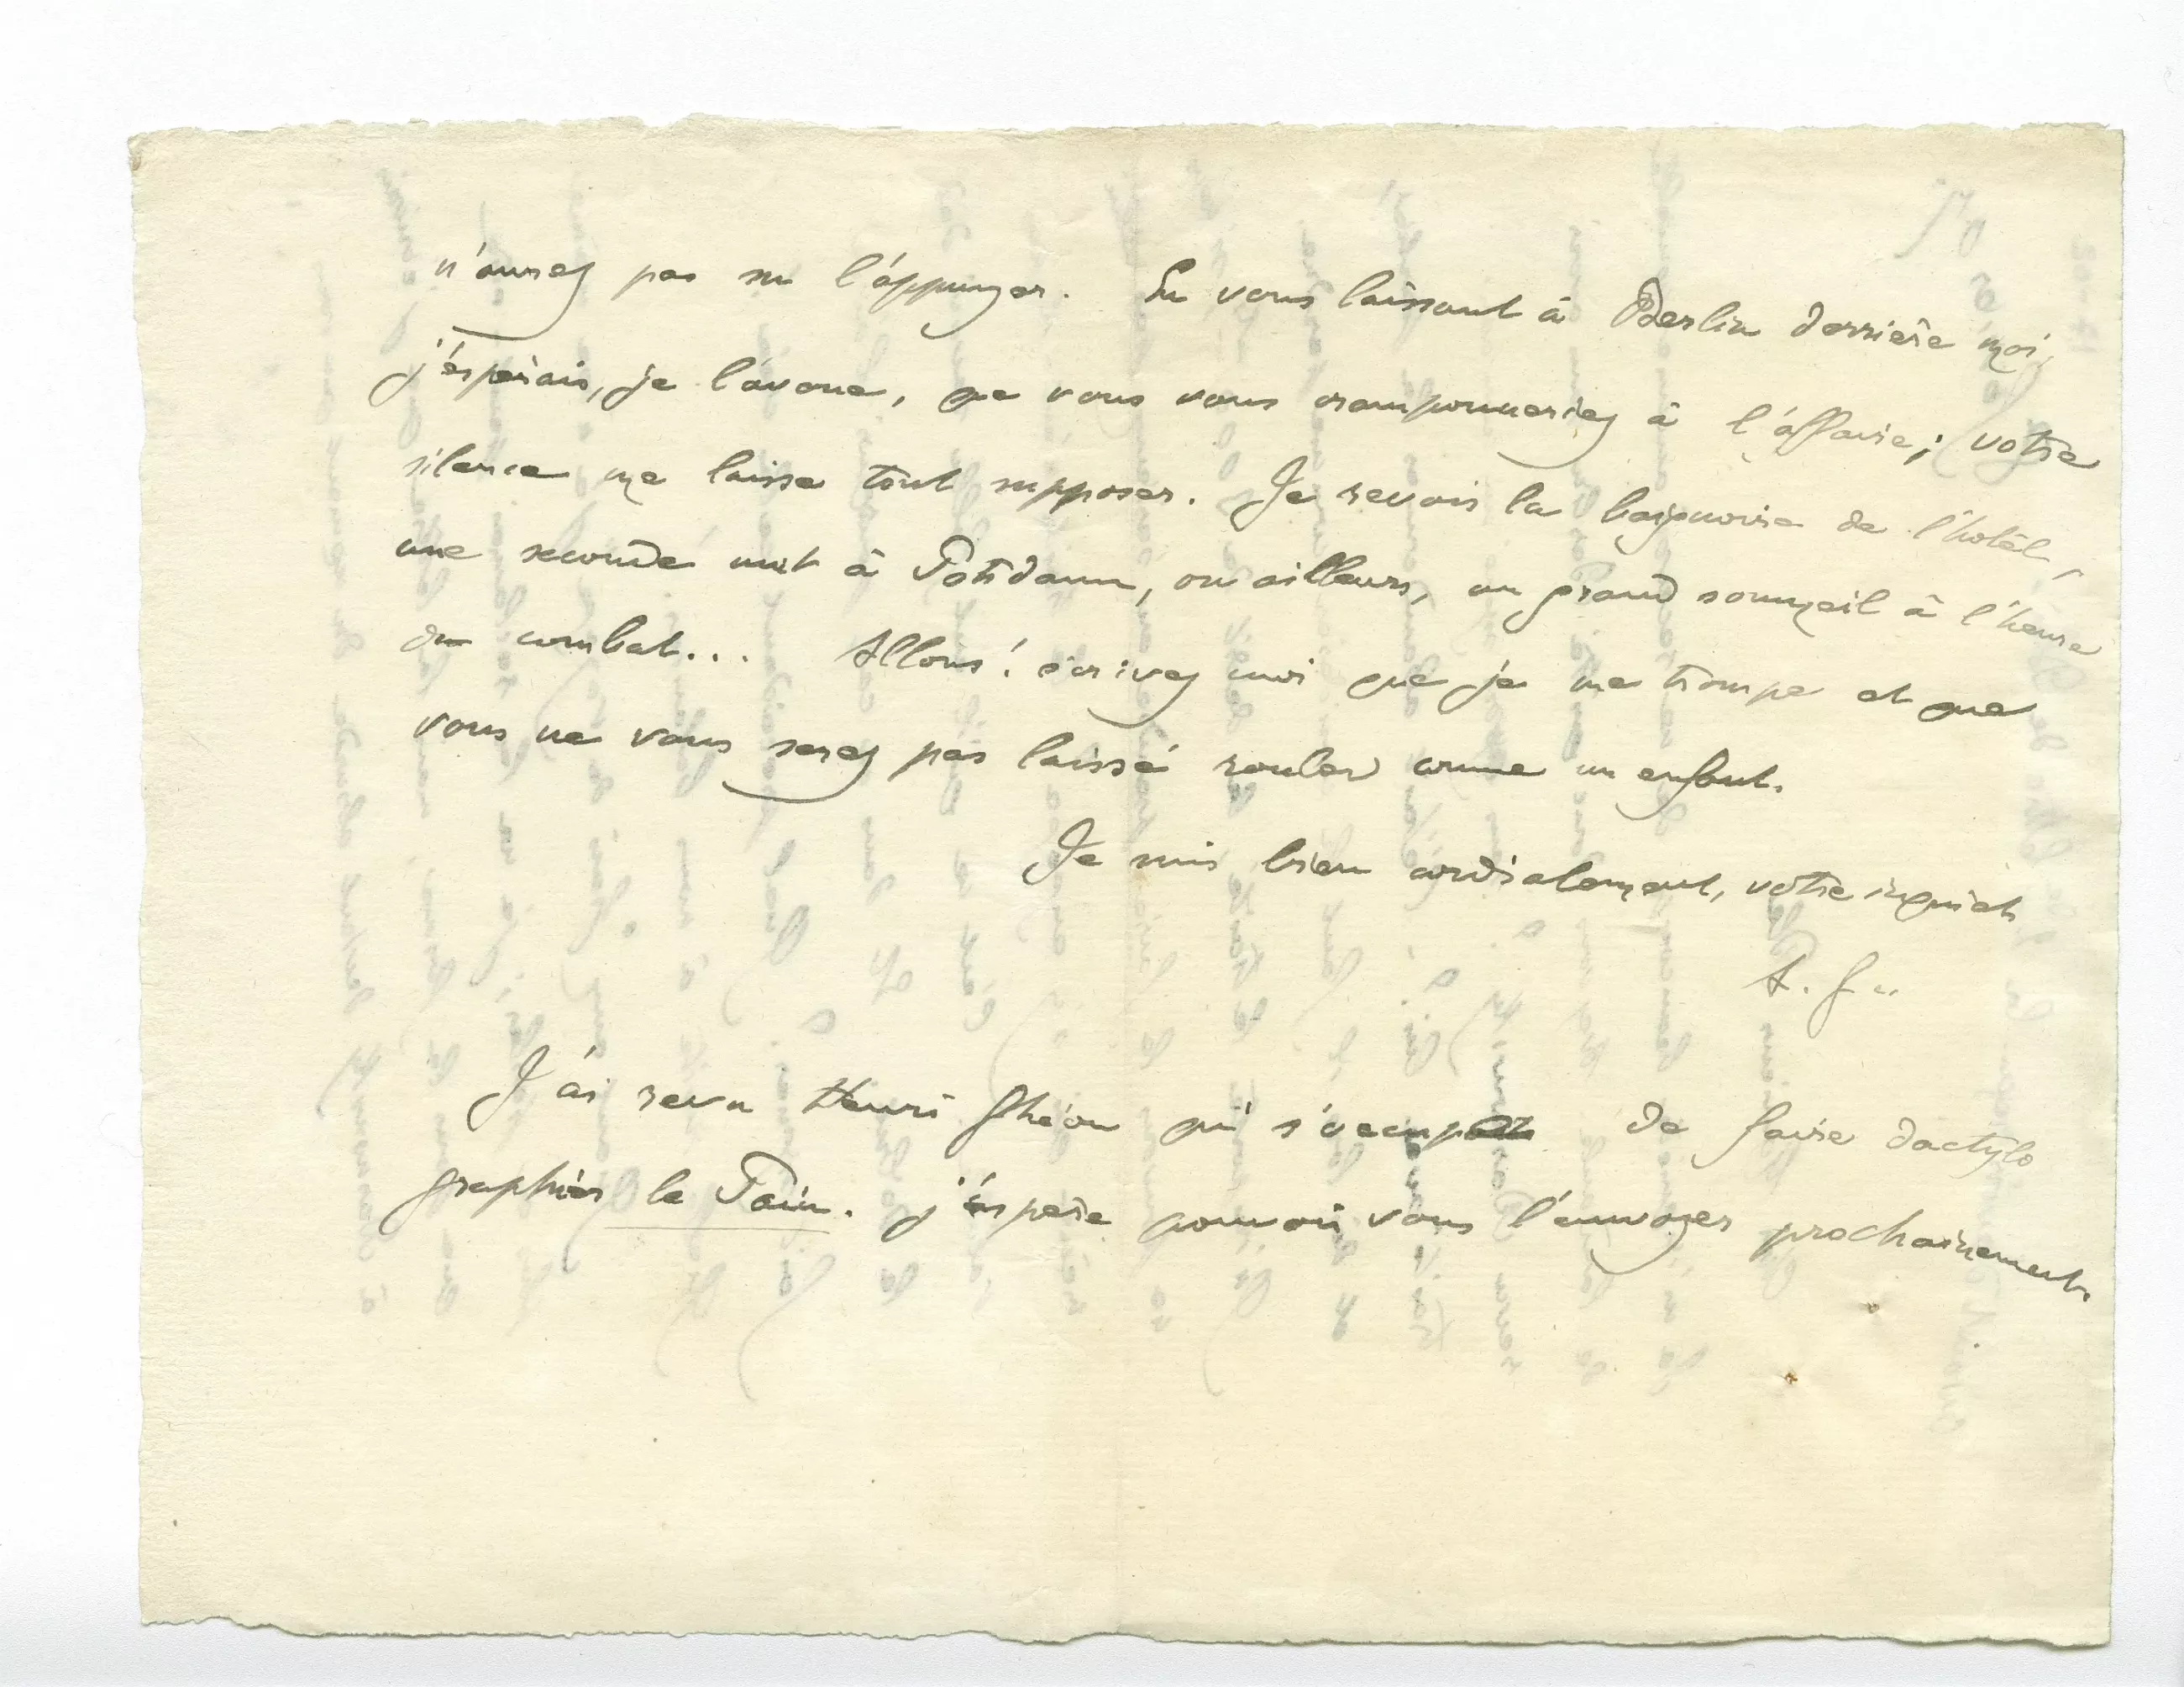 n'aurez pas su l'appuyer. En vous laissant à Berlin derrière moi,
j'espérais, je l'avoue, que vous vous cramponneriez à l'affaire; votre
silence me laisse tout supposer. Je revois la baignoire de l'hotel,
une seconde nuit à Potsdam, ou ailleurs, un grand sommeil à l'heure
du combat... Allons! écrivez moi que je me trompe et que
vous ne vous serez pas laissé rouler comme un enfant.
Je suis bien cordialement, votre inquiet
A. G..
J'ai revu Henri Ghéon qui s'occupe de faire dactylo
graphier le Pain. j'espère pouvoir vous l'envoyer prochainement.